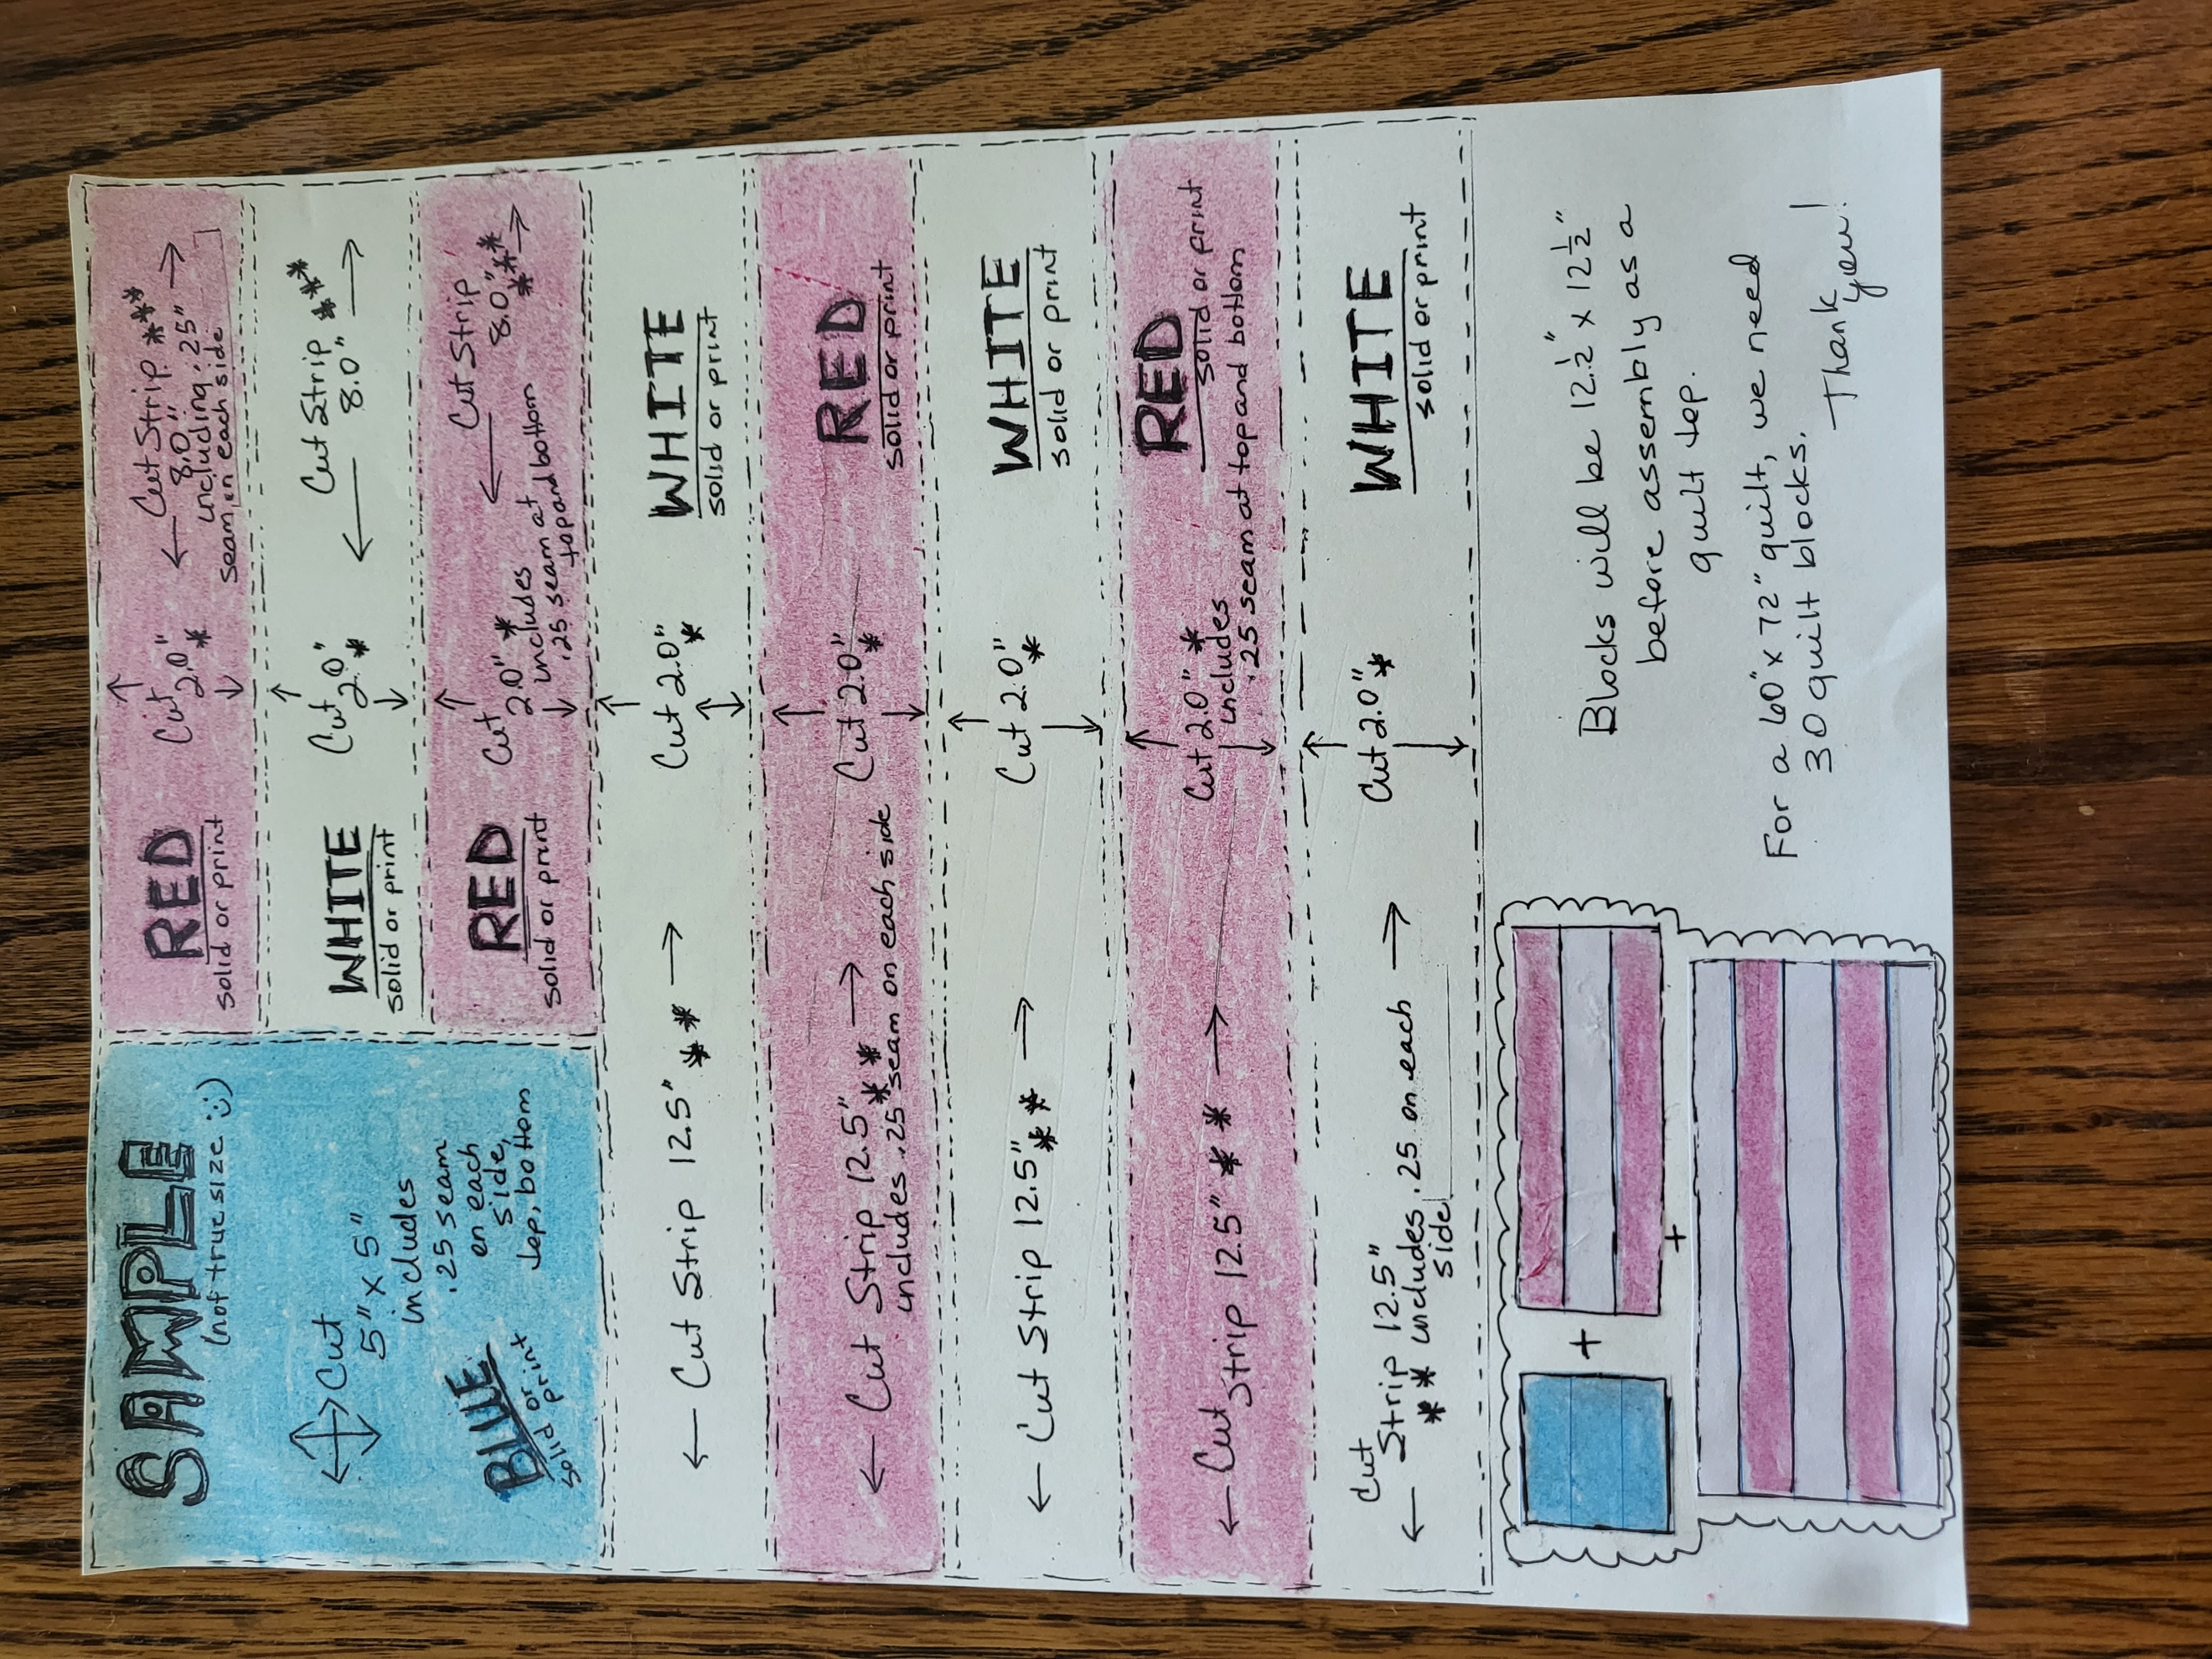 SAMPLE
(not true size :)
Cut
5" x 5"
includes
.25 seam
on each
side,
top, bottom
BLUE
solid or
print
RED
solid or print
Cut
2.0"
*
Cut Strip ***
8.0"
including .25"
seam on each side
WHITE
solid or print
Cut
2.0"
*
Cut Strip ***
8.0"
RED
solid or print
Cut
2.0" *
includes
.25 seam at
top and bottom
Cut Strip
8.0" ***
Cut Strip 12.5" **
Cut 2.0"
*
WHITE
solid or print
Cut Strip 12.5"
**
includes .25 seam on each side
Cut 2.0"
*
RED
solid or print
Cut Strip 12.5"
**
Cut 2.0"
*
WHITE
solid or print
Cut
Strip 12.5" **
Cut 2.0" *
includes
.25 seam at top and bottom
RED
solid or print
Cut
Strip 12.5"
** includes .25 on each
side
Cut 2.0"
*
WHITE
solid or print
+
+
Blocks will be 12 1/2" x 12 1/2"
before assembly as a
quilt top.
For a 60" x 72" quilt, we need
30 quilt blocks.
Thank
you!